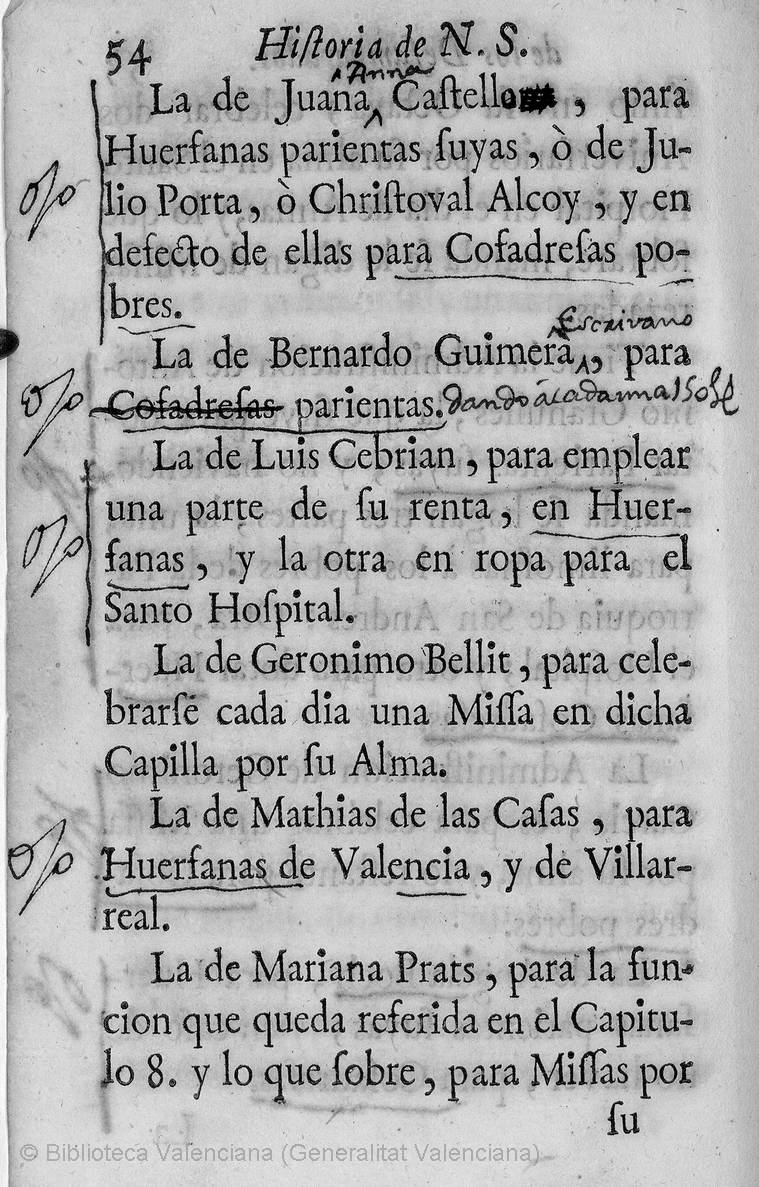 54 Hiſtoria de N. S.
Anna
La de Juana Caſtell , para
Huerfanas parientas ſuyas , ò de Ju-
lio Porta , ò Chriſtoval Alcoy , y en
defecto de ellas para Cofadreſas po-
bres.
Eſcrivano
La de Bernardo Guimerà , para
Cofadreſas parientas. dando á cada una 150
La de Luis Cebrian , para emplear
una parte de ſu renta , en Huer-
fanas , y la otra en ropa para el
Santo Hoſpital.
La de Geronimo Bellit , para cele-
brarſe cada dia una Miſſa en dicha
Capilla por ſu Alma.
La de Mathias de las Caſas , para
Huerfanas de Valencia , y de Villar-
real.
La de Mariana Prats , para la fun-
cion que queda referida en el Capitu-
lo 8. y lo que ſobre , para Miſſas por
ſu
© Biblioteca Valenciana (Generalitat Valenciana)